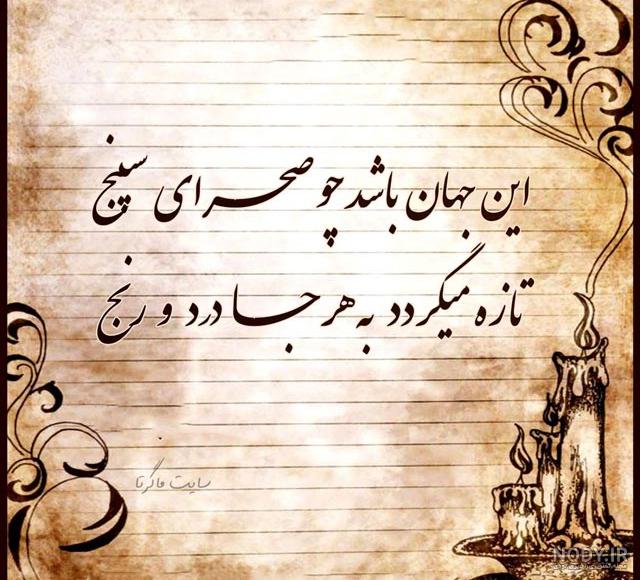 این جهان باشد چو صحرای سپنج
تازه میگردد به هر جا درد و رنج
سایت ماگرتا
NODY.IR